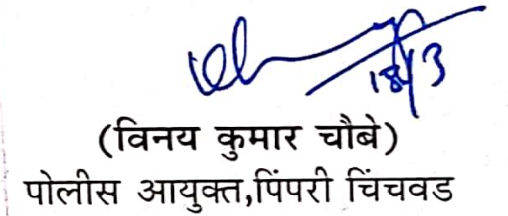 18/3
(विनय कुमार चौबे)
पोलीस आयुक्त,पिंपरी चिंचवड